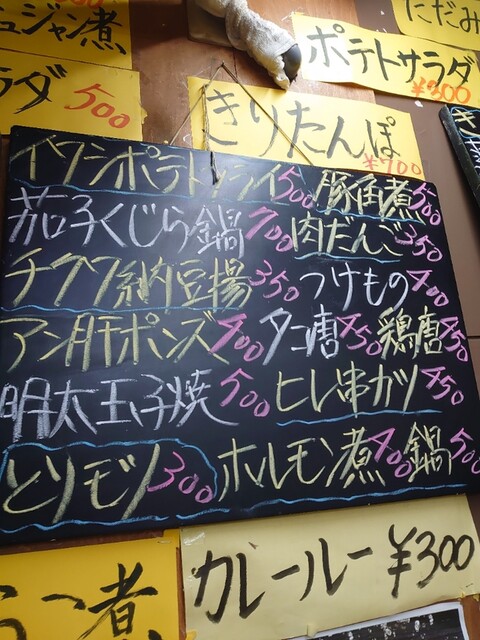 ュジャン煮
ラダ 500
ポテトサラダ
¥300
きりたんぽ
¥700
イワシポテトフライ500 豚角煮500
茄子くじら鍋700 肉だんご350
チクワ納豆揚350 つけもの400
アン肝ポンズ400 タコ唐450 鶏唐450
明太玉子焼500 ヒレ串カツ450
とりモツ300 ホルモン煮400 鍋500
カレールー¥300
煮